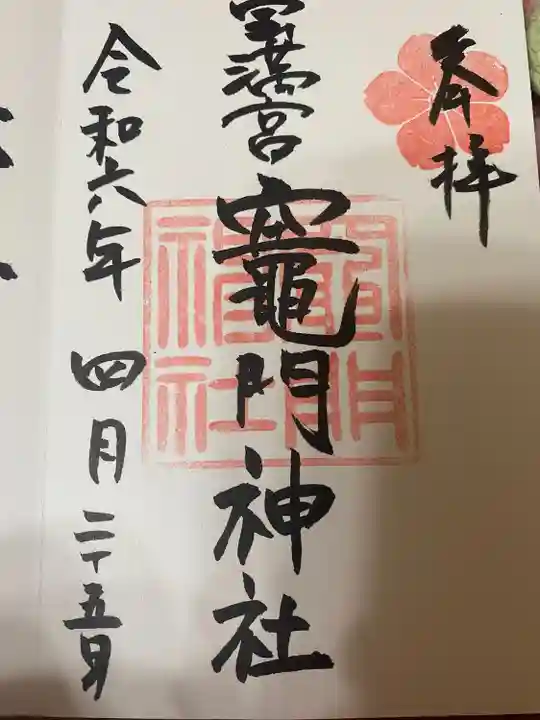 奉拝
宝満宮
竈門神社
竈門神社
令和六年 四月 二十五日